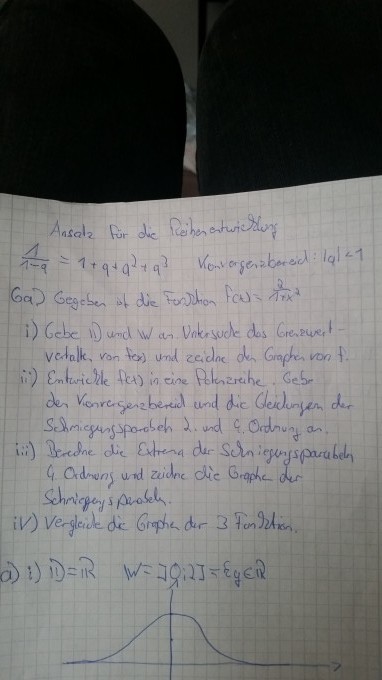 Ansatz für die Reihenentwicklung
1/(1-q) = 1+q+q²+q³ Konvergenzbereich: |q|<1
6a) Gegeben ist die Funktion f(x)= 2/(1+x²)
i) Gebe D und W an. Untersuche das Grenzwert-
verhalten von f(x) und zeichne den Graphen von f.
ii) Entwickle f(x) in eine Potenzreihe. Gebe
den Konvergenzbereich und die Gleichungen der
Schmiegungsparabeln 2. und 4. Ordnung an.
iii) Berechne die Extrema der Schmiegungsparabeln
4. Ordnung und zeichne die Graphen der
Schmiegungsparabeln.
iv) Vergleiche die Graphen der 3 Funktionen.
a) i) D=ℝ W=]0;2]={y∈ℝ